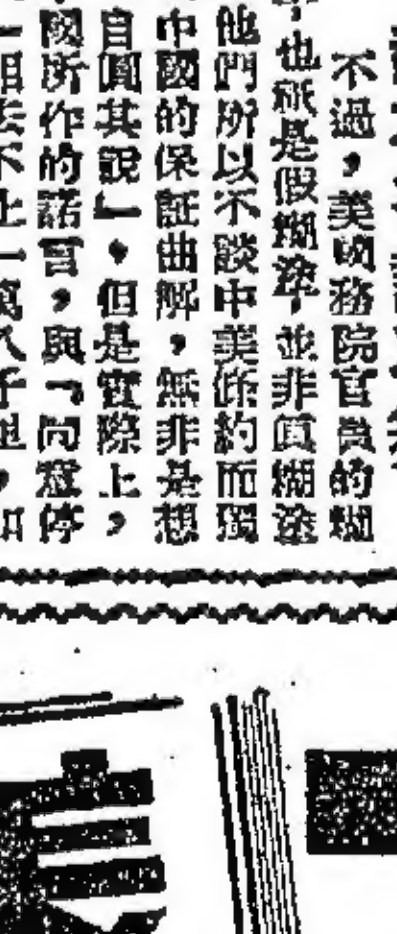 不過，美國務院官員的糊
也祇是假糊塗，並非真糊塗
他們所以不談中美條約而獨
中國的保証曲解，無非是想
自圓其說」，但是實際上，
國所作的諾言，與「同意停
相去不止一萬八千里，如